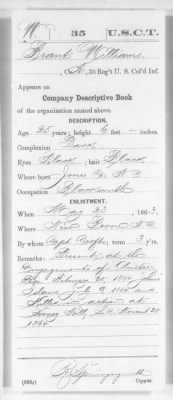 W 35 U.S.C.T.
Grant Williams
, Co. , 35 Reg't U. S. Col'd Inf.
Appears on
Company Descriptive Book
of the organization named above.
DESCRIPTION.
Age 25 years; height 6 feet — inches.
Complexion Dark
Eyes Black; hair Black
Where born Jones Co. N.C.
Occupation Blacksmith
ENLISTMENT.
When May 23, 1863.
Where New Bern N.C.
By whom Capt. ; term 3 y'rs.
Remarks: Present at the
Engagements of Olustee
Fla. February 20, 1864
Island, 9, 1864 and
Killed in action at
Honey Hill, S.C. 30
1864
Copyist.